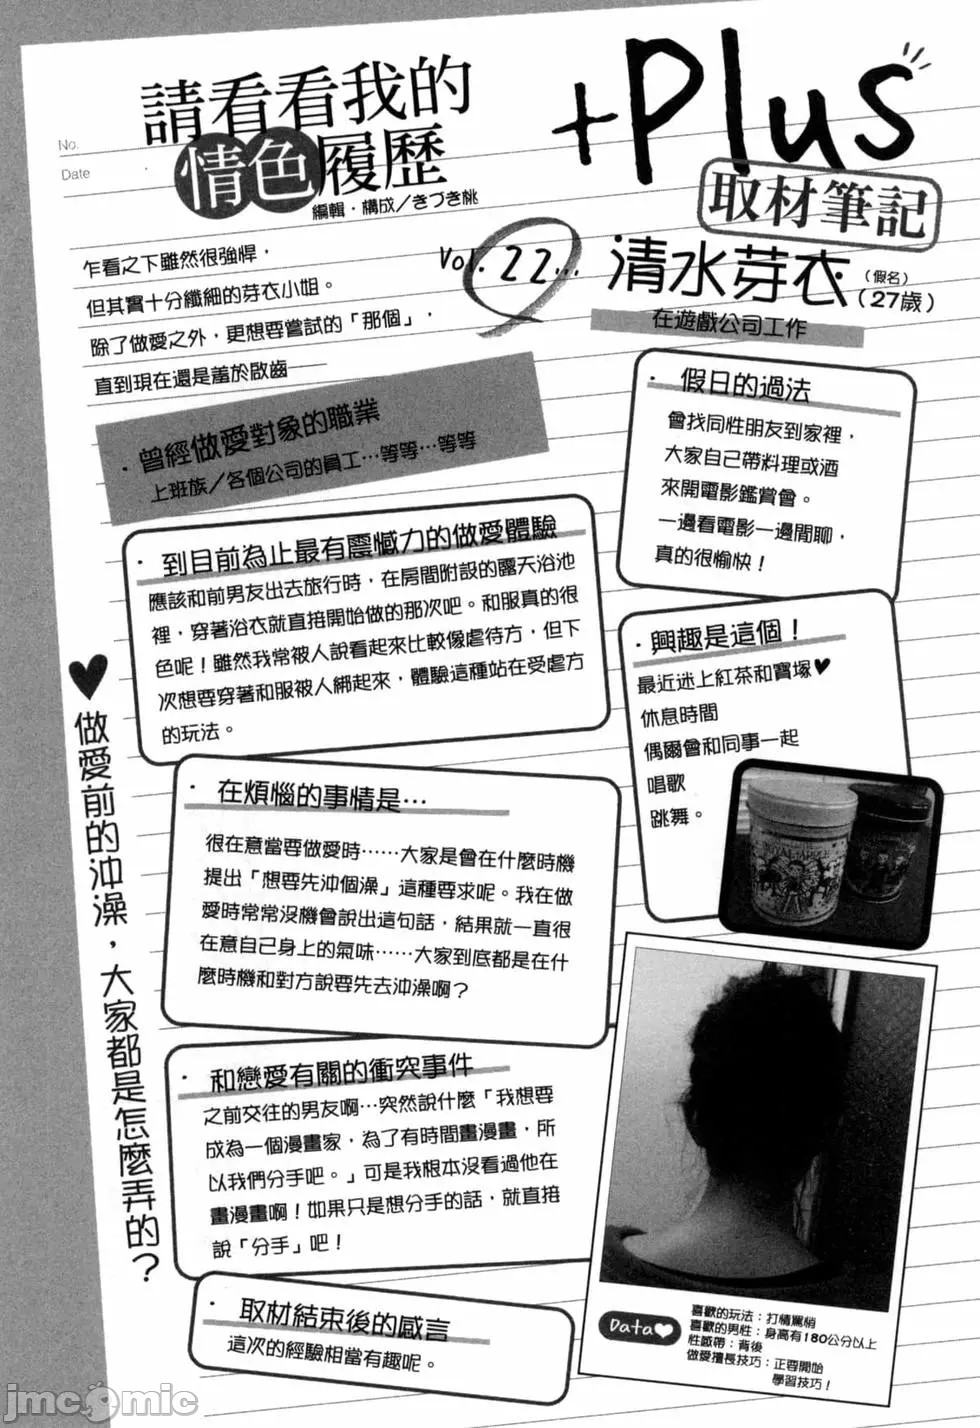 +Plus
請看看我的
情色履歷
編輯・構成／きづき桃
取材筆記
No.
Date
Vol. 22…
清水芽衣
（假名）
（27歲）
在遊戲公司工作
乍看之下雖然很強悍，
但其實十分纖細的芽衣小姐。
除了做愛之外，更想要嘗試的「那個」，
直到現在還是羞於啟齒——
・曾經做愛對象的職業
上班族／各個公司的員工…等等…等等
・到目前為止最有震憾力的做愛體驗
應該和前男友出去旅行時，在房間附設的露天浴池
裡，穿著浴衣就直接開始做的那次吧。和服真的很
色呢！雖然我常被人說看起來比較像虐待方，但下
次想要穿著和服被人綁起來，體驗這種站在受虐方
的玩法。
・在煩惱的事情是…
很在意當要做愛時……大家是會在什麼時機
提出「想要先沖個澡」這種要求呢。我在做
愛時常常沒機會說出這句話，結果就一直很
在意自己身上的氣味……大家到底都是在什
麼時機和對方說要先去沖澡啊？
・和戀愛有關的衝突事件
之前交往的男友啊…突然說什麼「我想要
成為一個漫畫家，為了有時間畫漫畫，所
以我們分手吧。」可是我根本沒看過他在
畫漫畫啊！如果只是想分手的話，就直接
說「分手」吧！
・取材結束後的感言
這次的經驗相當有趣呢。
♥做愛前的沖澡，大家都是怎麼弄的？
・假日的過法
會找同性朋友到家裡，
大家自己帶料理或酒
來開電影鑑賞會。
一邊看電影一邊閒聊，
真的很愉快！
・興趣是這個！
最近迷上紅茶和寶塚♥
休息時間
偶爾會和同事一起
唱歌
跳舞。
Data♥
喜歡的玩法：打情罵悄
喜歡的男性：身高有180公分以上
性感帶：背後
做愛擅長技巧：正要開始
學習技巧！
jmcomic